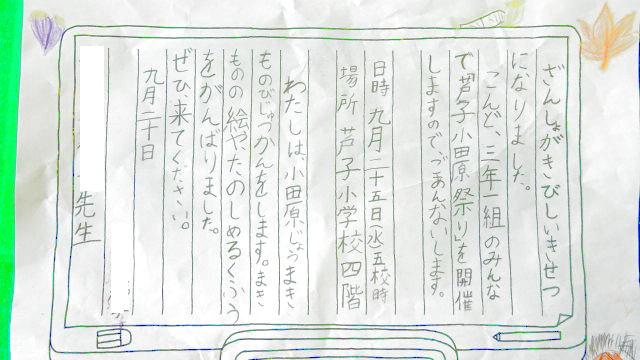 ざんしょがきびしいきせつ
になりました。
こんど、三年一組のみんな
で「芦子小田原祭り」を開催
しますので、ごあんないします。
日時 九月二十五日(水)五校時
場所 芦子小学校四階
わたしは、小田原じょうまきま
ものびじゅつかんをします。まき
ものの絵や、たのしめるくふう
をがんばりました。
ぜひ、来てください。
九月二十日
先生